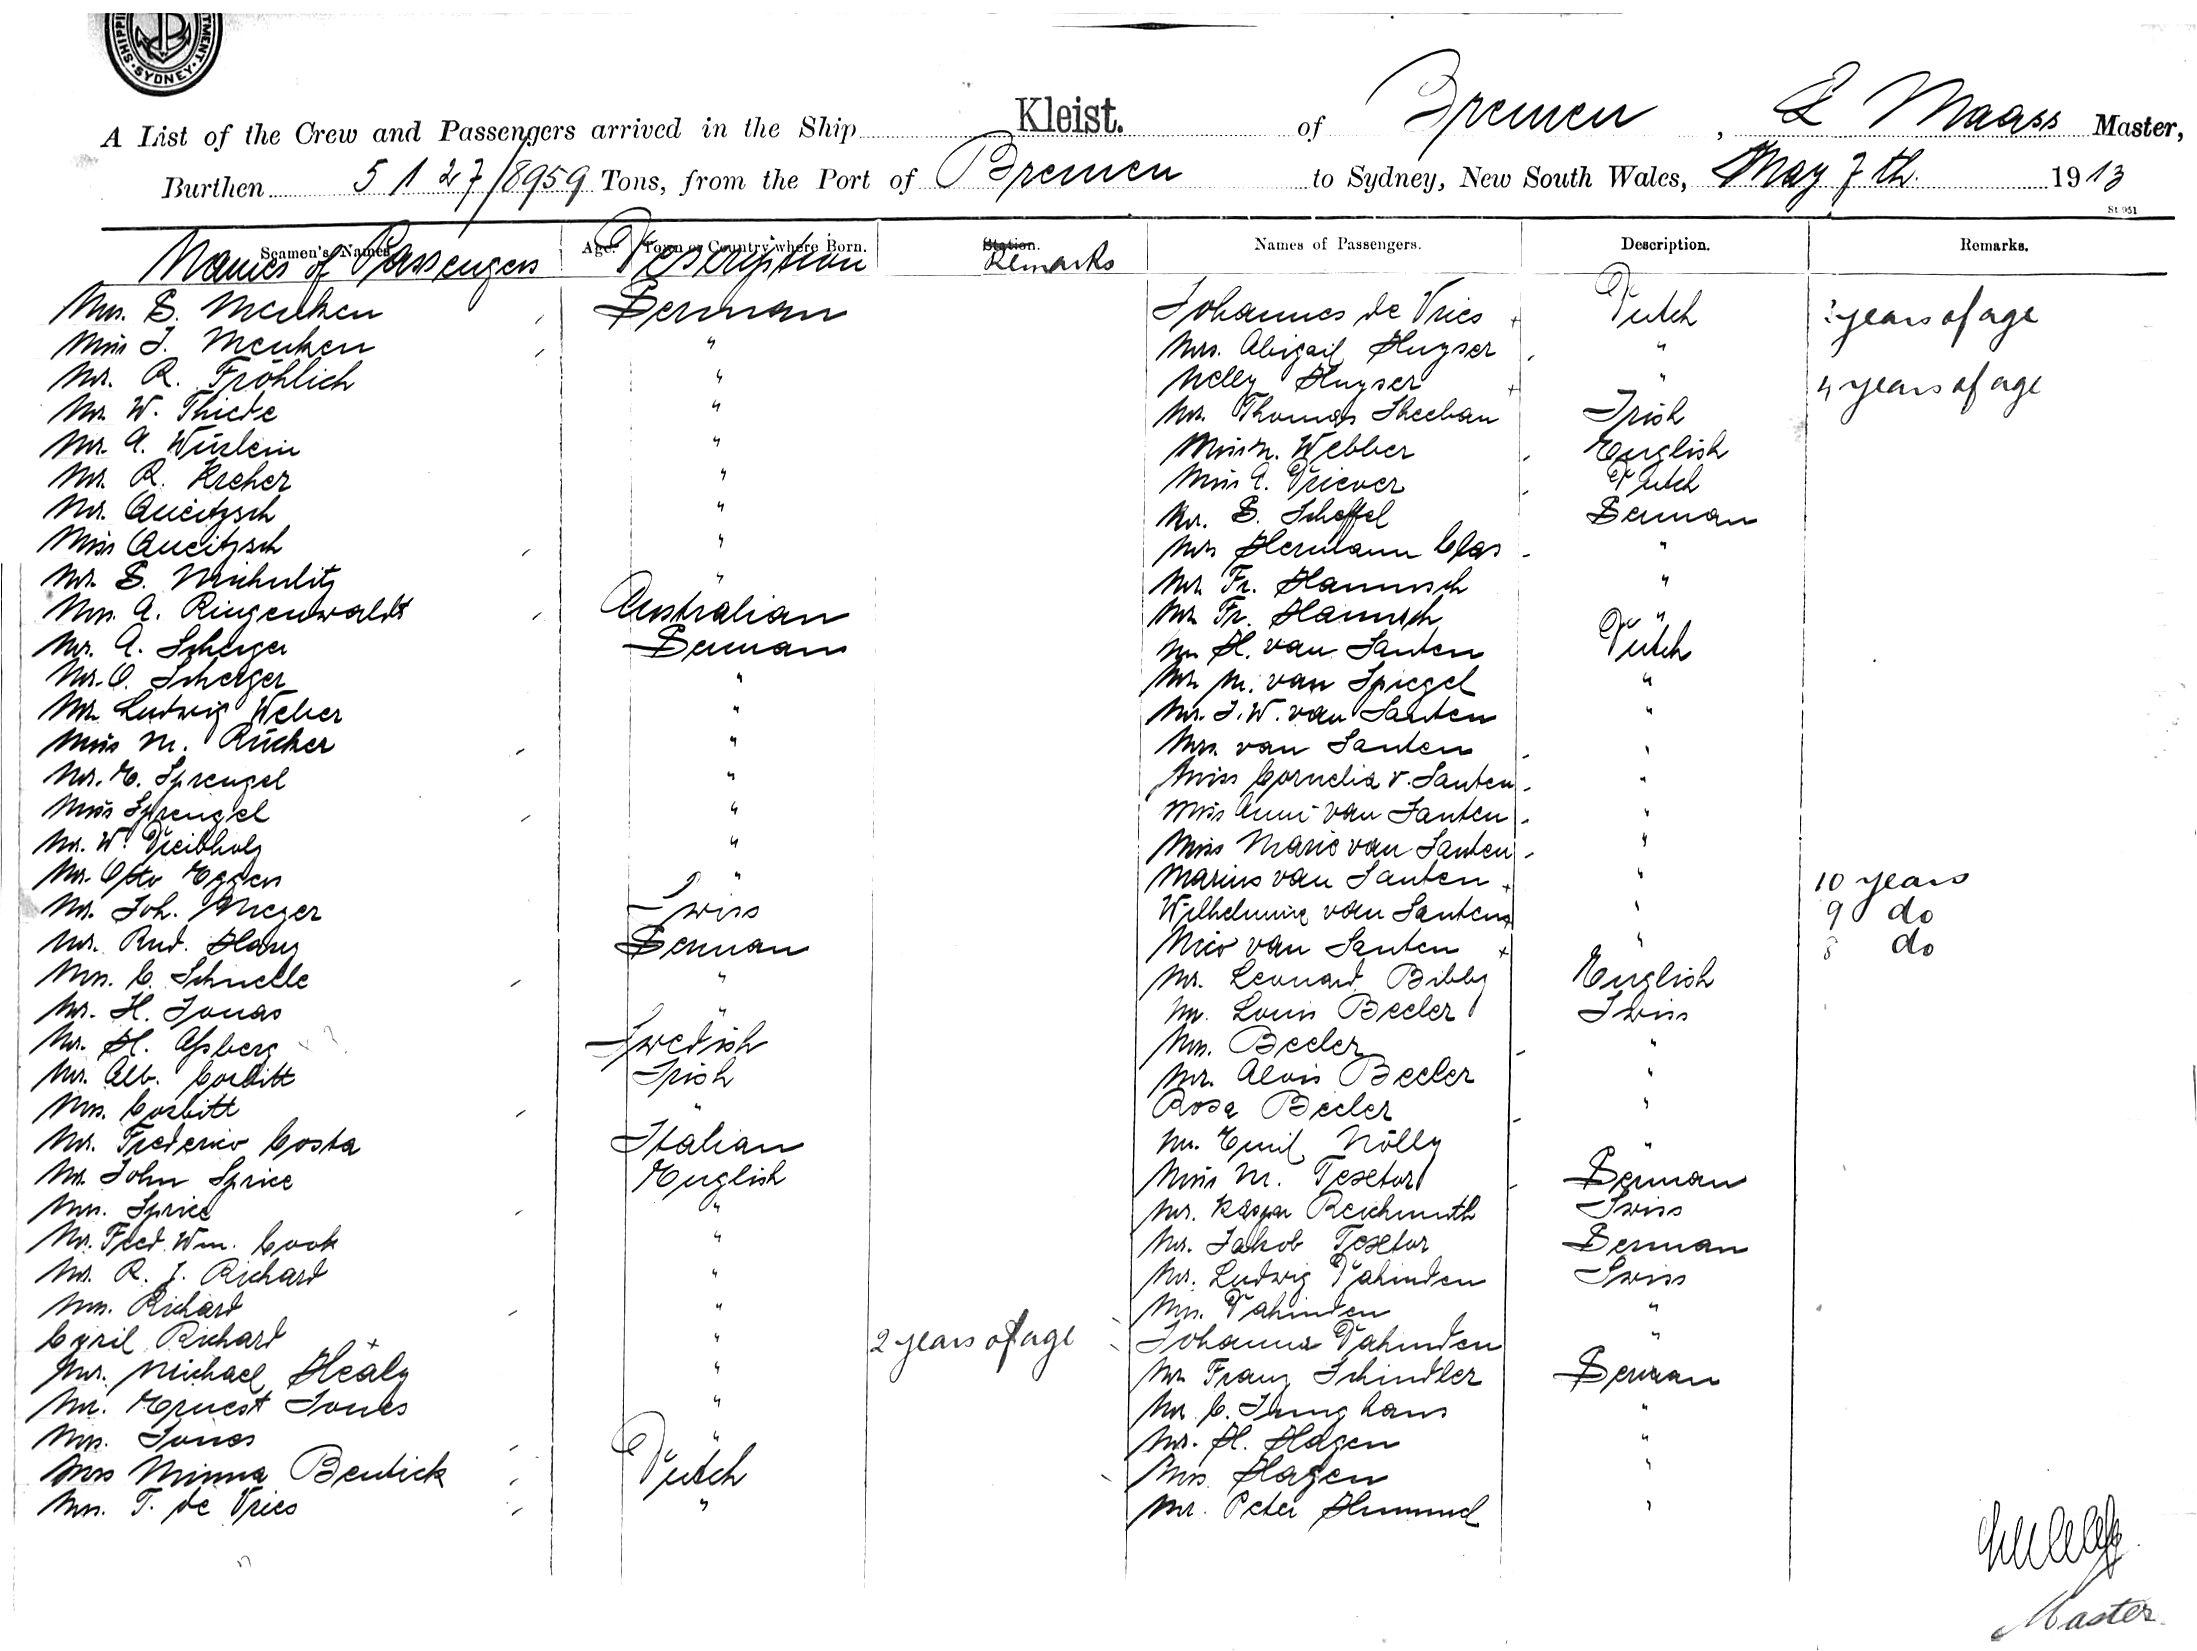 SHIPPI
TMENT.
·SYDNEY·
A List of the Crew and Passengers arrived in the Ship Kleist. of Bremen, L Maass Master,
Burthen 5127/8959 Tons, from the Port of Bremen to Sydney, New South Wales, May 7th 1913
St 951
Seamen's Names. Age. Town or Country where Born. Station. Names of Passengers. Description. Remarks.
Names of Passengers Description Remarks
Mrs. G. Menken German
Miss J. Menken "
Mr. R. Fröhlich "
Mr. W. Thiede "
Mr. A. Würlein "
Mr. R. Kreher "
Mr. Queitzsch "
Miss Queitzsch "
Mr. G. Michulitz "
Mrs. A. Ringenwaldt Australian
Mr. A. Scherger German
Mr. O. Scherger "
Mr. Ludwig Weber "
Miss M. Rücker "
Mr. E. Sprengel "
Miss Sprengel "
Mr. W. Dreibholz "
Mr. Otto Eggers "
Mr. Joh. Meyer Swiss
Mr. Rud. Harz German
Mrs. C. Schnelle "
Mr. H. Jonas "
Mr. H. Assberg Swedish
Mr. Alb. Corbitt Irish
Mrs. Corbitt "
Mr. Frederico Costa Italian
Mr. John Sprice English
Mrs. Sprice "
Mr. Fred. Wm. Cook "
Mr. R. J. Richard "
Mrs. Richard "
Cyril Richard " 2 years of age
Mr. Michael Healy "
Mr. Ernest Jones "
Mrs. Jones "
Mrs Minna Bentick Dutch
Mrs. T. de Vries "
Johannes de Vries Dutch years of age
Mrs. Abigail Huyser "
Nelly Huyser " 4 years of age
Mr. Thomas Sheehan Irish
Miss M. Webber English
Miss A. Driever Dutch
Mr. G. Scheffel German
Mrs Hermann Clas "
Mr. Fr. Hannusch "
Mr. Fr. Hannisch "
Mr. H. van Santen Dutch
Mr. M. van Spiegel "
Mr. J. W. van Santen "
Mrs. van Santen "
Miss Cornelia v. Santen "
Miss Anni van Santen "
Miss Marie van Santen "
Marius van Santen " 10 years
Wilhelmine van Santen " 9 do
Nico van Santen " 8 do
Mr. Leonard Bibby English
Mr. Louis Beeler Swiss
Mrs. Beeler "
Mr. Alois Beeler "
Rosa Beeler "
Mr. Emil Nölly "
Miss M. Textor German
Mr. Kaspar Reichmuth Swiss
Mr. Jakob Textor German
Mr. Ludwig Dahinden Swiss
Mrs. Dahinden "
Johanna Dahinden "
Mr. Franz Schindler German
Mr. C. Junghans "
Mr. H. Hagen "
Mrs. Hagen "
Mr. Peter Hummel "
Master